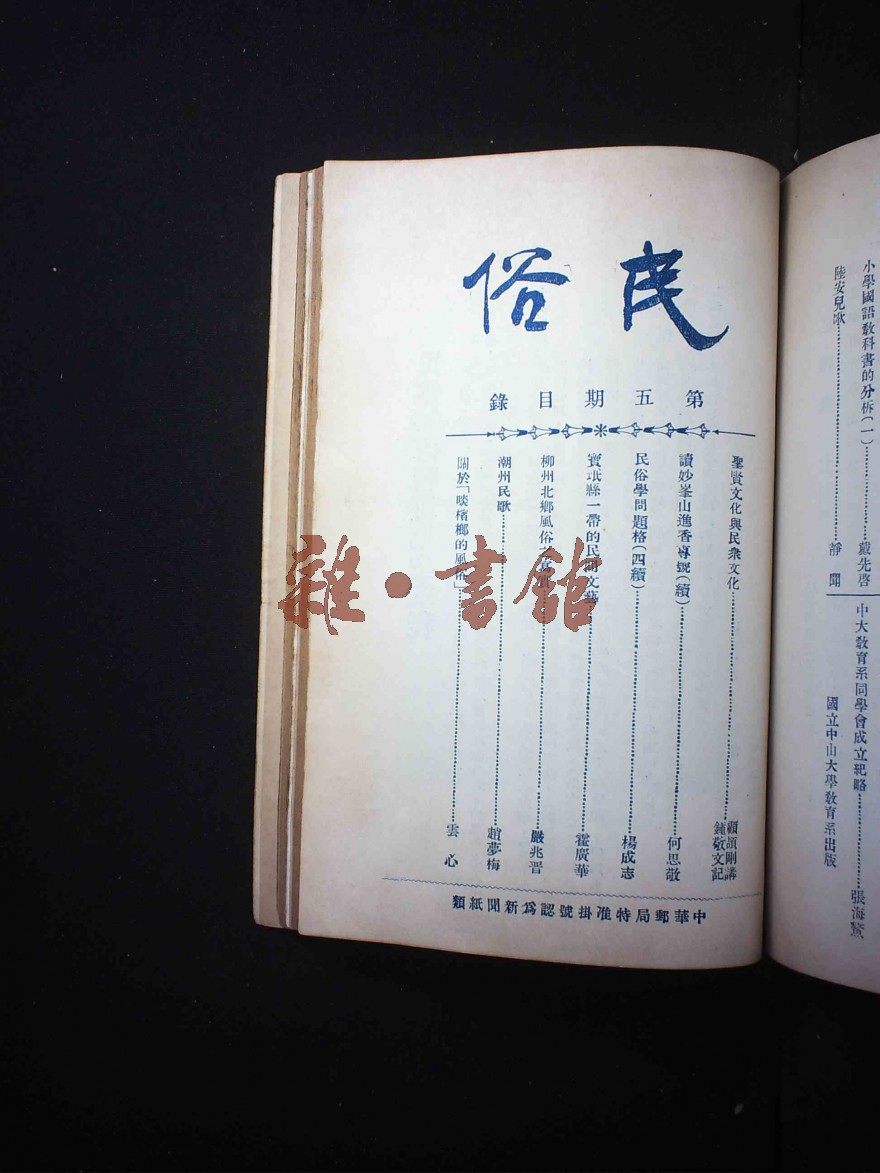 民俗
第五期目錄
聖賢文化與民衆文化……顧頡剛講 鍾敬文記
讀妙峯山進香專號(續)……何思敬
民俗學問題格(四續)……楊成志
寶坻縣一帶的民間文藝……霍廣華
柳州北鄉風俗……嚴兆晋
潮州民歌……趙夢梅
關於「啖檳榔的風俗」……雲心
中華郵局特准掛號認爲新聞紙類
小學國語教科書的分析(一)……戴先啓
陸安兒歌……靜聞
中大教育系同學會成立紀略……張海
國立中山大學教育系出版
雜·書館